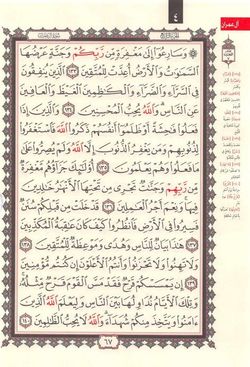 آل عمران
٤
وَسَارِعُوا إِلَىٰ مَغْفِرَةٍ مِن رَّبِّكُمْ وَجَنَّةٍ عَرْضُهَا
السَّمَٰوَٰتُ وَالْأَرْضُ أُعِدَّتْ لِلْمُتَّقِينَ ١٣٣ الَّذِينَ يُنفِقُونَ
فِي السَّرَّاءِ وَالضَّرَّاءِ وَالْكَٰظِمِينَ الْغَيْظَ وَالْعَافِينَ
عَنِ النَّاسِ وَاللَّهُ يُحِبُّ الْمُحْسِنِينَ ١٣٤ وَالَّذِينَ إِذَا
فَعَلُوا فَٰحِشَةً أَوْ ظَلَمُوا أَنفُسَهُمْ ذَكَرُوا اللَّهَ فَاسْتَغْفَرُوا
لِذُنُوبِهِمْ وَمَن يَغْفِرُ الذُّنُوبَ إِلَّا اللَّهُ وَلَمْ يُصِرُّوا عَلَىٰ
مَا فَعَلُوا وَهُمْ يَعْلَمُونَ ١٣٥ أُولَٰئِكَ جَزَاؤُهُم مَّغْفِرَةٌ
مِّن رَّبِّهِمْ وَجَنَّٰتٌ تَجْرِي مِن تَحْتِهَا الْأَنْهَٰرُ خَٰلِدِينَ
فِيهَا وَنِعْمَ أَجْرُ الْعَٰمِلِينَ ١٣٦ قَدْ خَلَتْ مِن قَبْلِكُمْ سُنَنٌ
فَسِيرُوا فِي الْأَرْضِ فَانظُرُوا كَيْفَ كَانَ عَٰقِبَةُ الْمُكَذِّبِينَ
١٣٧ هَٰذَا بَيَانٌ لِّلنَّاسِ وَهُدًى وَمَوْعِظَةٌ لِّلْمُتَّقِينَ ١٣٨
وَلَا تَهِنُوا وَلَا تَحْزَنُوا وَأَنتُمُ الْأَعْلَوْنَ إِن كُنتُم مُّؤْمِنِينَ
١٣٩ إِن يَمْسَسْكُمْ قَرْحٌ فَقَدْ مَسَّ الْقَوْمَ قَرْحٌ مِّثْلُهُ
وَتِلْكَ الْأَيَّامُ نُدَاوِلُهَا بَيْنَ النَّاسِ وَلِيَعْلَمَ اللَّهُ الَّذِينَ
ءَامَنُوا وَيَتَّخِذَ مِنكُمْ شُهَدَاءَ وَاللَّهُ لَا يُحِبُّ الظَّٰلِمِينَ ١٤٠
٦٧